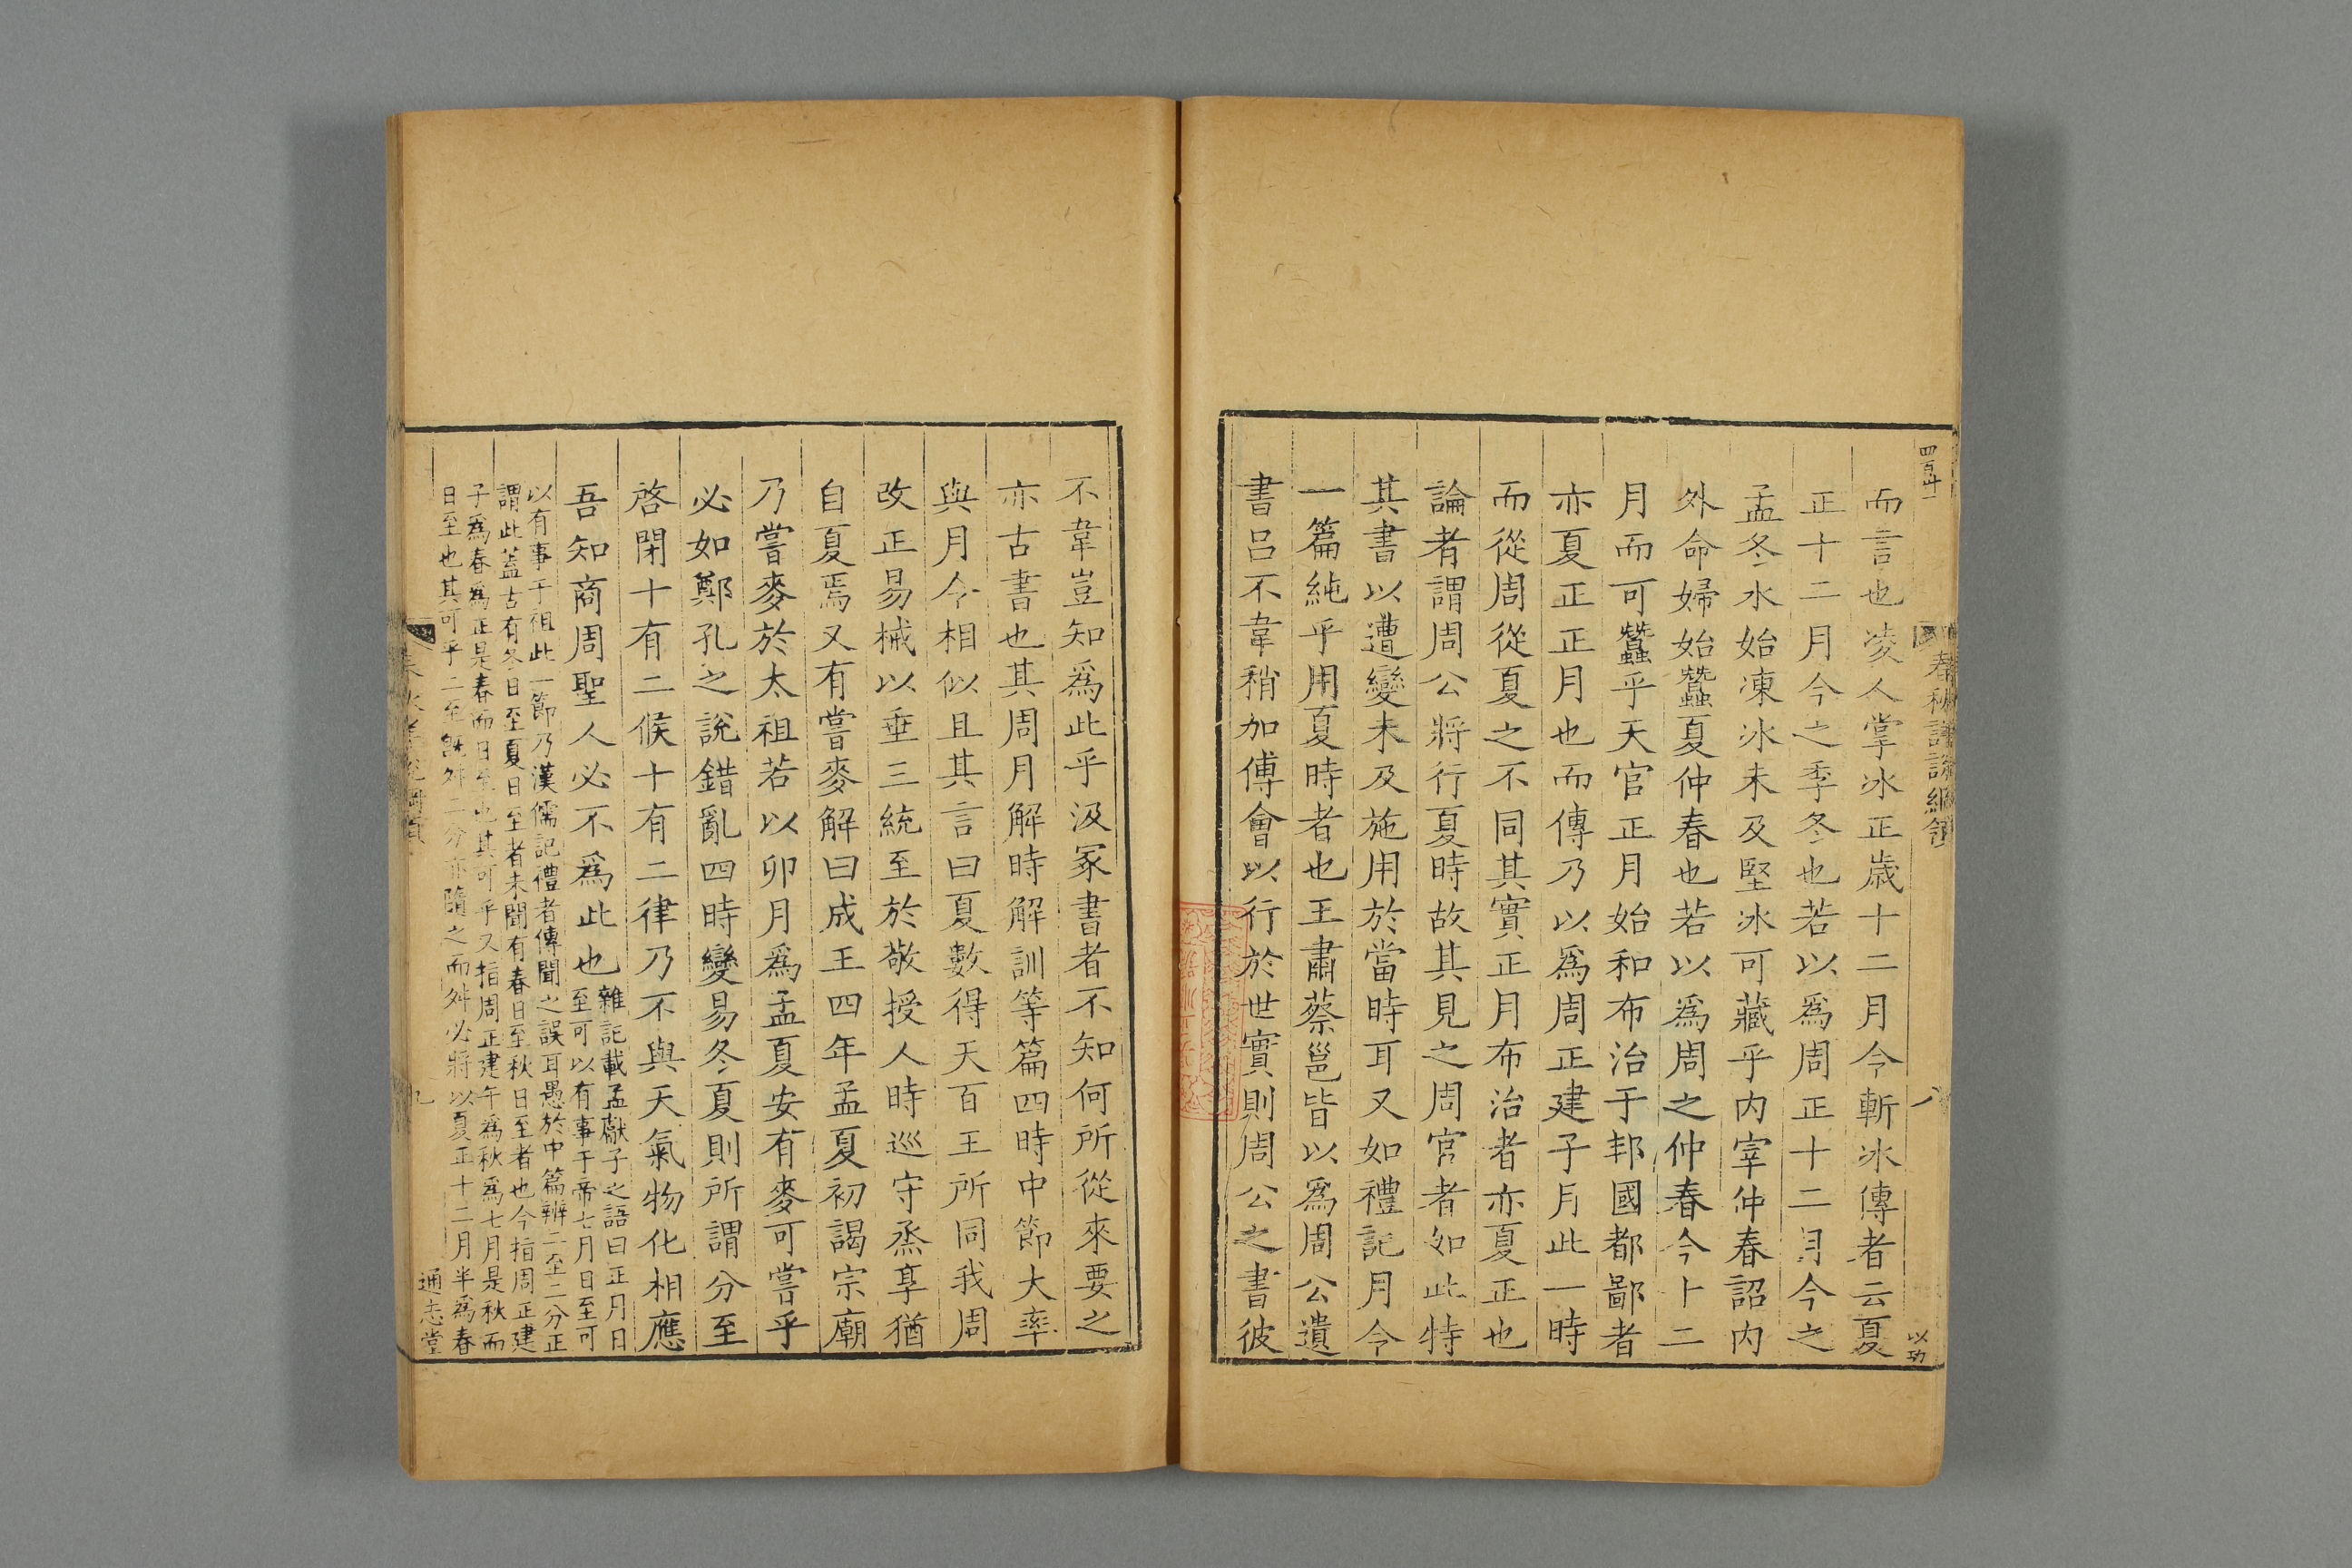 四百廿一
春秋詳說綱領
八
以功
而言也凌人掌冰正歲十二月今斬冰傳者云夏
正十二月今之季冬也若以為周正十二月今之
孟冬水始凍冰未及堅冰可藏乎内宰仲春詔内
外命婦始蠶夏仲春也若以爲周之仲春今十二
月而可蠶乎天官正月始和布治于邦國都鄙者
亦夏正正月也而傳乃以爲周正建子月此一時
而從周從夏之不同其實正月布治者亦夏正也
論者謂周公將行夏時故其見之周官者如此特
其書以遭變未及施用於當時耳又如禮記月令
一篇純乎用夏時者也王肅蔡邕皆以爲周公遺
書吕不韋稍加傅會以行於世實則周公之書彼
不韋豈知爲此乎汲冢書者不知何所從來要之
亦古書也其周月解時解訓等篇四時中節大率
與月令相似且其言曰夏數得天百王所同我周
改正易械以垂三統至於敬授人時巡守烝享猶
自夏焉又有嘗麥解曰成王四年孟夏初謁宗廟
乃嘗麥於太祖若以卯月爲孟夏安有麥可嘗乎
必如鄭孔之說錯亂四時變易冬夏則所謂分至
啓閉十有二候十有二律乃不與天氣物化相應
吾知商周聖人必不爲此也
雜記載孟獻子之語曰正月日
至可以有事于帝七月日至可
以有事于祖此一節乃漢儒記禮者傳聞之誤耳愚於中篇辨二至二分正
謂此蓋古有冬日至夏日至者未聞有春日至秋日至者也今指周正建
子爲春爲正是春而日至也其可乎又指周正建午爲秋爲七月是秋而
日至也其可乎二至旣舛二分亦隨之而舛必將以夏正十二月半爲春
九
通志堂